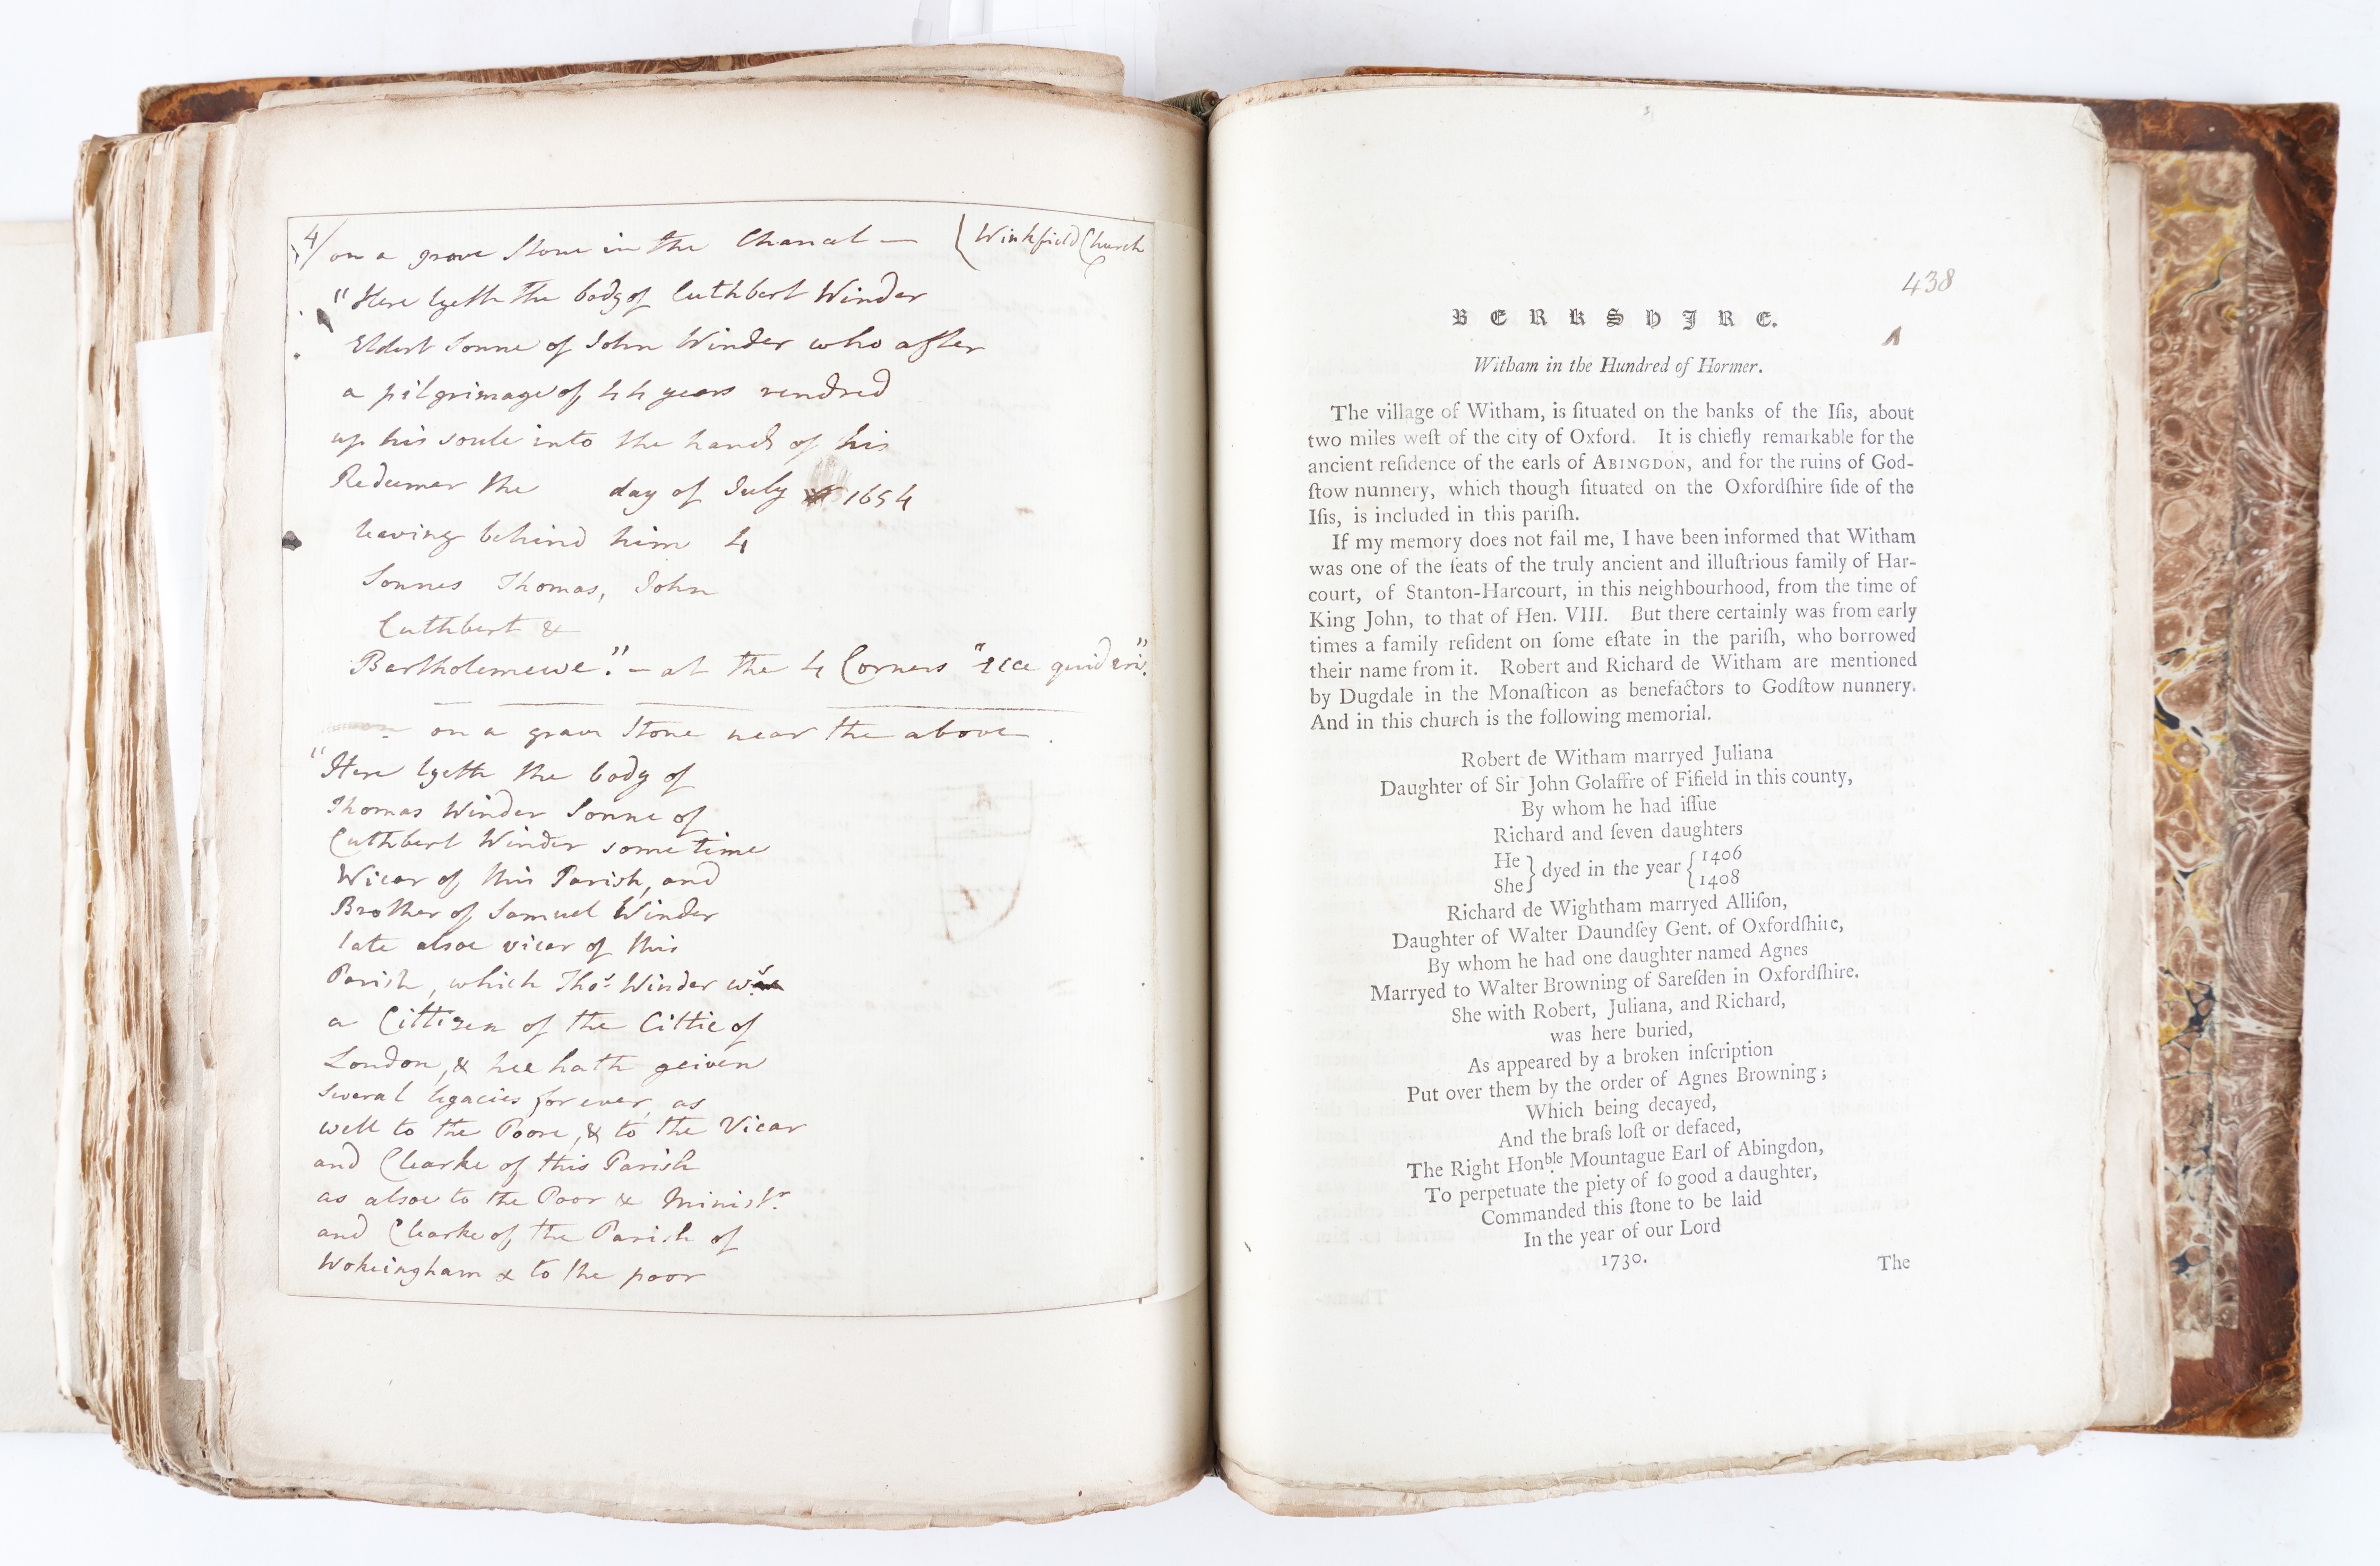 4/ on a grave Stone in the Chancel — ( Winkfield Church
"Here lyeth the body of Cuthbert Winder
Eldest Sonne of John Winder who after
a pilgrimage of 44 years rendred
up his soule into the hands of his
Redeemer the day of July 1654
leaving behind him 4
Sonnes Thomas, John
Cuthbert &
Bartholemewe." — at the 4 Corners "Ecce quid eris".
on a grave Stone near the above.
"Here lyeth the body of
Thomas Winder Sonne of
Cuthbert Winder some time
Vicar of this Parish, and
Brother of Samuel Winder
late alsoe vicar of this
Parish, which Thos. Winder ws
a Cittizen of the Cittie of
London, & hee hath geiven
several legacies for ever, as
well to the Poore, & to the Vicar
and Clearke of this Parish
as alsoe to the Poor & Ministr.
and Clearke of the Parish of
Wokeingham & to the poor
438
BERKSHIRE.
Witham in the Hundred of Hormer.
The village of Witham, is ſituated on the banks of the Iſis, about
two miles weſt of the city of Oxford. It is chiefly remarkable for the
ancient reſidence of the earls of ABINGDON, and for the ruins of God-
ſtow nunnery, which though ſituated on the Oxfordſhire ſide of the
Iſis, is included in this pariſh.
If my memory does not fail me, I have been informed that Witham
was one of the ſeats of the truly ancient and illuſtrious family of Har-
court, of Stanton-Harcourt, in this neighbourhood, from the time of
King John, to that of Hen. VIII. But there certainly was from early
times a family reſident on ſome eſtate in the pariſh, who borrowed
their name from it. Robert and Richard de Witham are mentioned
by Dugdale in the Monaſticon as benefactors to Godſtow nunnery.
And in this church is the following memorial.
Robert de Witham marryed Juliana
Daughter of Sir John Golaffre of Fifield in this county,
By whom he had iſſue
Richard and ſeven daughters
He } dyed in the year { 1406
She } { 1408
Richard de Wightham marryed Alliſon,
Daughter of Walter Daundſey Gent. of Oxfordſhire,
By whom he had one daughter named Agnes
Marryed to Walter Browning of Sareſden in Oxfordſhire.
She with Robert, Juliana, and Richard,
was here buried,
As appeared by a broken inſcription
Put over them by the order of Agnes Browning;
Which being decayed,
And the braſs loſt or defaced,
The Right Honble. Mountague Earl of Abingdon,
To perpetuate the piety of ſo good a daughter,
Commanded this ſtone to be laid
In the year of our Lord
1730.
The